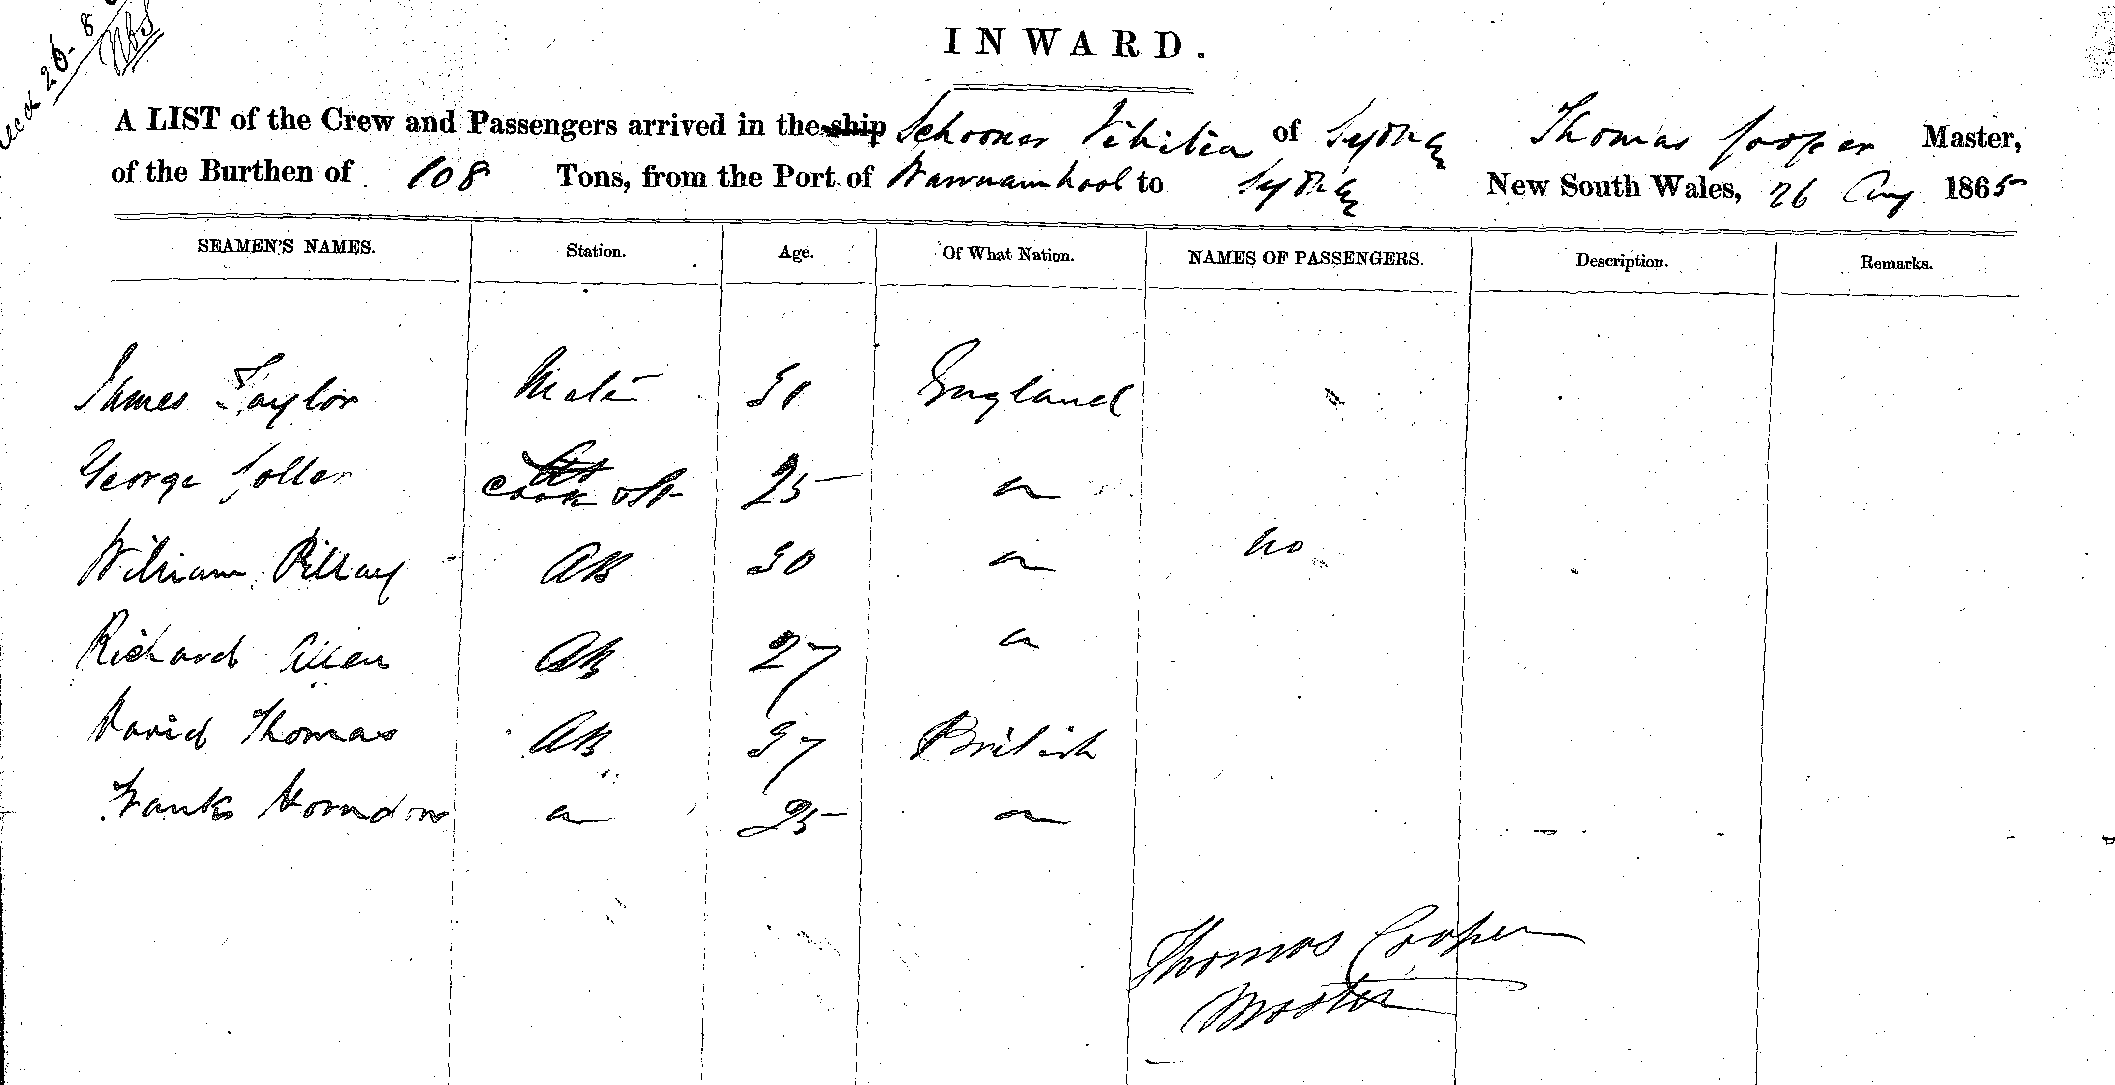 26-8
INWARD.
A LIST of the Crew and Passengers arrived in the ship Schooner of Sydney Thomas Cooper Master,
of the Burthen of 108 Tons, from the Port of Warrnambool to Sydney New South Wales, 26 Aug 1865
SEAMEN'S NAMES. Station. Age. Of What Nation. NAMES OF PASSENGERS. Description. Remarks.
James Taylor Mate 30 England
George 25 "
William Pillay AB 30 " no
Richard Allen AB 27 "
David Thomas AB 37 British
" 25 "
Thomas Cooper
Master